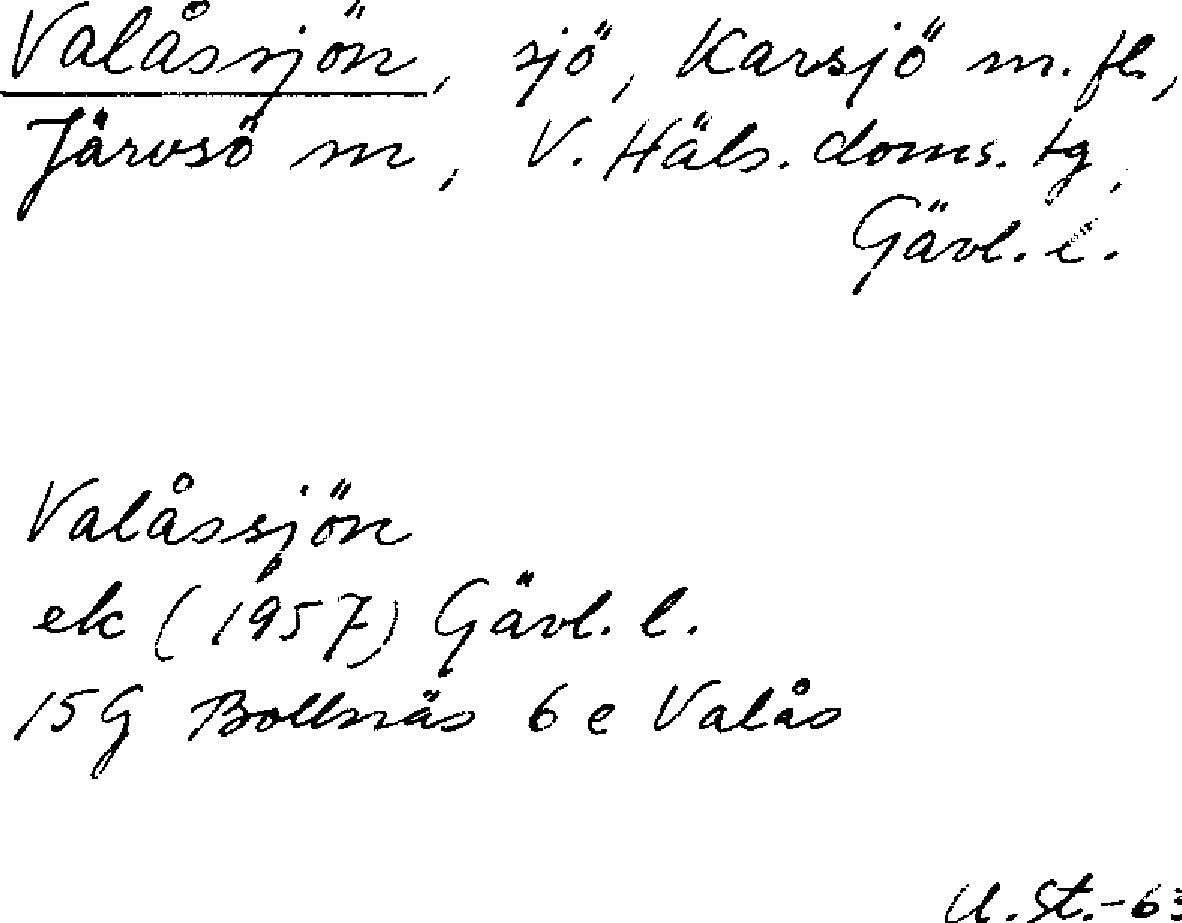 Valåssjön, sjö, Karsjö m. fl.,
Järvsö m, V. Häls. doms. tg,
Gävl. l.
Valåssjön
ek (1957) Gävl. l.
15G Bollnäs 6 e Valås
U. St. -63